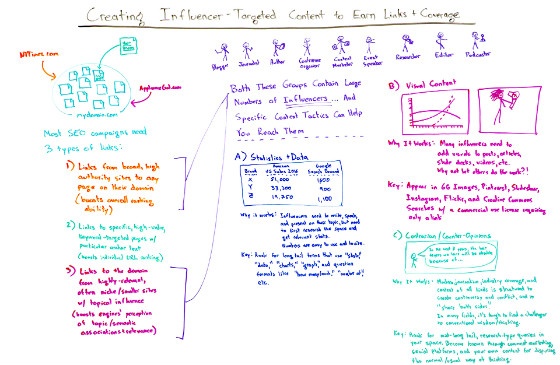 Creating Influencer-Targeted Content to Earn Links + Coverage
NYTimes.com
mydomain.com
AppleInsider.com
Most SEO campaigns need
3 types of links:
1) Links from broad, high
authority sites to any
page on their domain
(boosts overall ranking
ability)
2) Links to specific, high-value,
keyword-targeted pages w/
particular anchor text
(boosts individual URL ranking)
3) Links to the domain
from highly-relevant,
often niche/smaller sites
w/ topical influence
(boosts engines' perception
of topic/semantic
association + relevance)
Blogger
Journalist
Author
Conference
Organizer
Content
Marketer
Event
Speaker
Researcher
Editor
Podcaster
Both These Groups Contain Large
Numbers of Influencers... And
Specific Content Tactics Can Help
You Reach Them
A) Statistics + Data
Brand
Amazon
US Sales 2016
Google
Search Demand
X
51,000
1600
Y
33,200
900
Z
19,750
1,100
Why it works: Influencers need to write, speak,
and present on their topic, but need
to first research the space and
get relevant stats.
Numbers are easy to use and cite.
Key: Rank for long tail terms that use "stats",
"data", "charts", "graphs", and question
formats like "how many/much", "number of"
etc.
B) Visual Content
Why It Works: Many influencers need to
add visuals to posts, articles,
slide decks, videos, etc.
Why not let others do the work?!
Key: Appear in G Images, Pinterest, Slideshare,
Instagram, Flickr, and Creative Commons
Searches w/ a commercial use license requiring
only a link
C) Contrarian/Counter-Opinions
Why It Works: Modern journalism, industry coverage, and
content of all kinds is structured to
create controversy and conflict, and so
"share both sides"
In many fields, it's tough to find a challenger
to conventional wisdom/thinking.
Key: Rank for mid-long tail, research-type queries in
your space. Become known through comment marketing,
social platforms, and your own content for disputing
the normal/usual way of thinking.